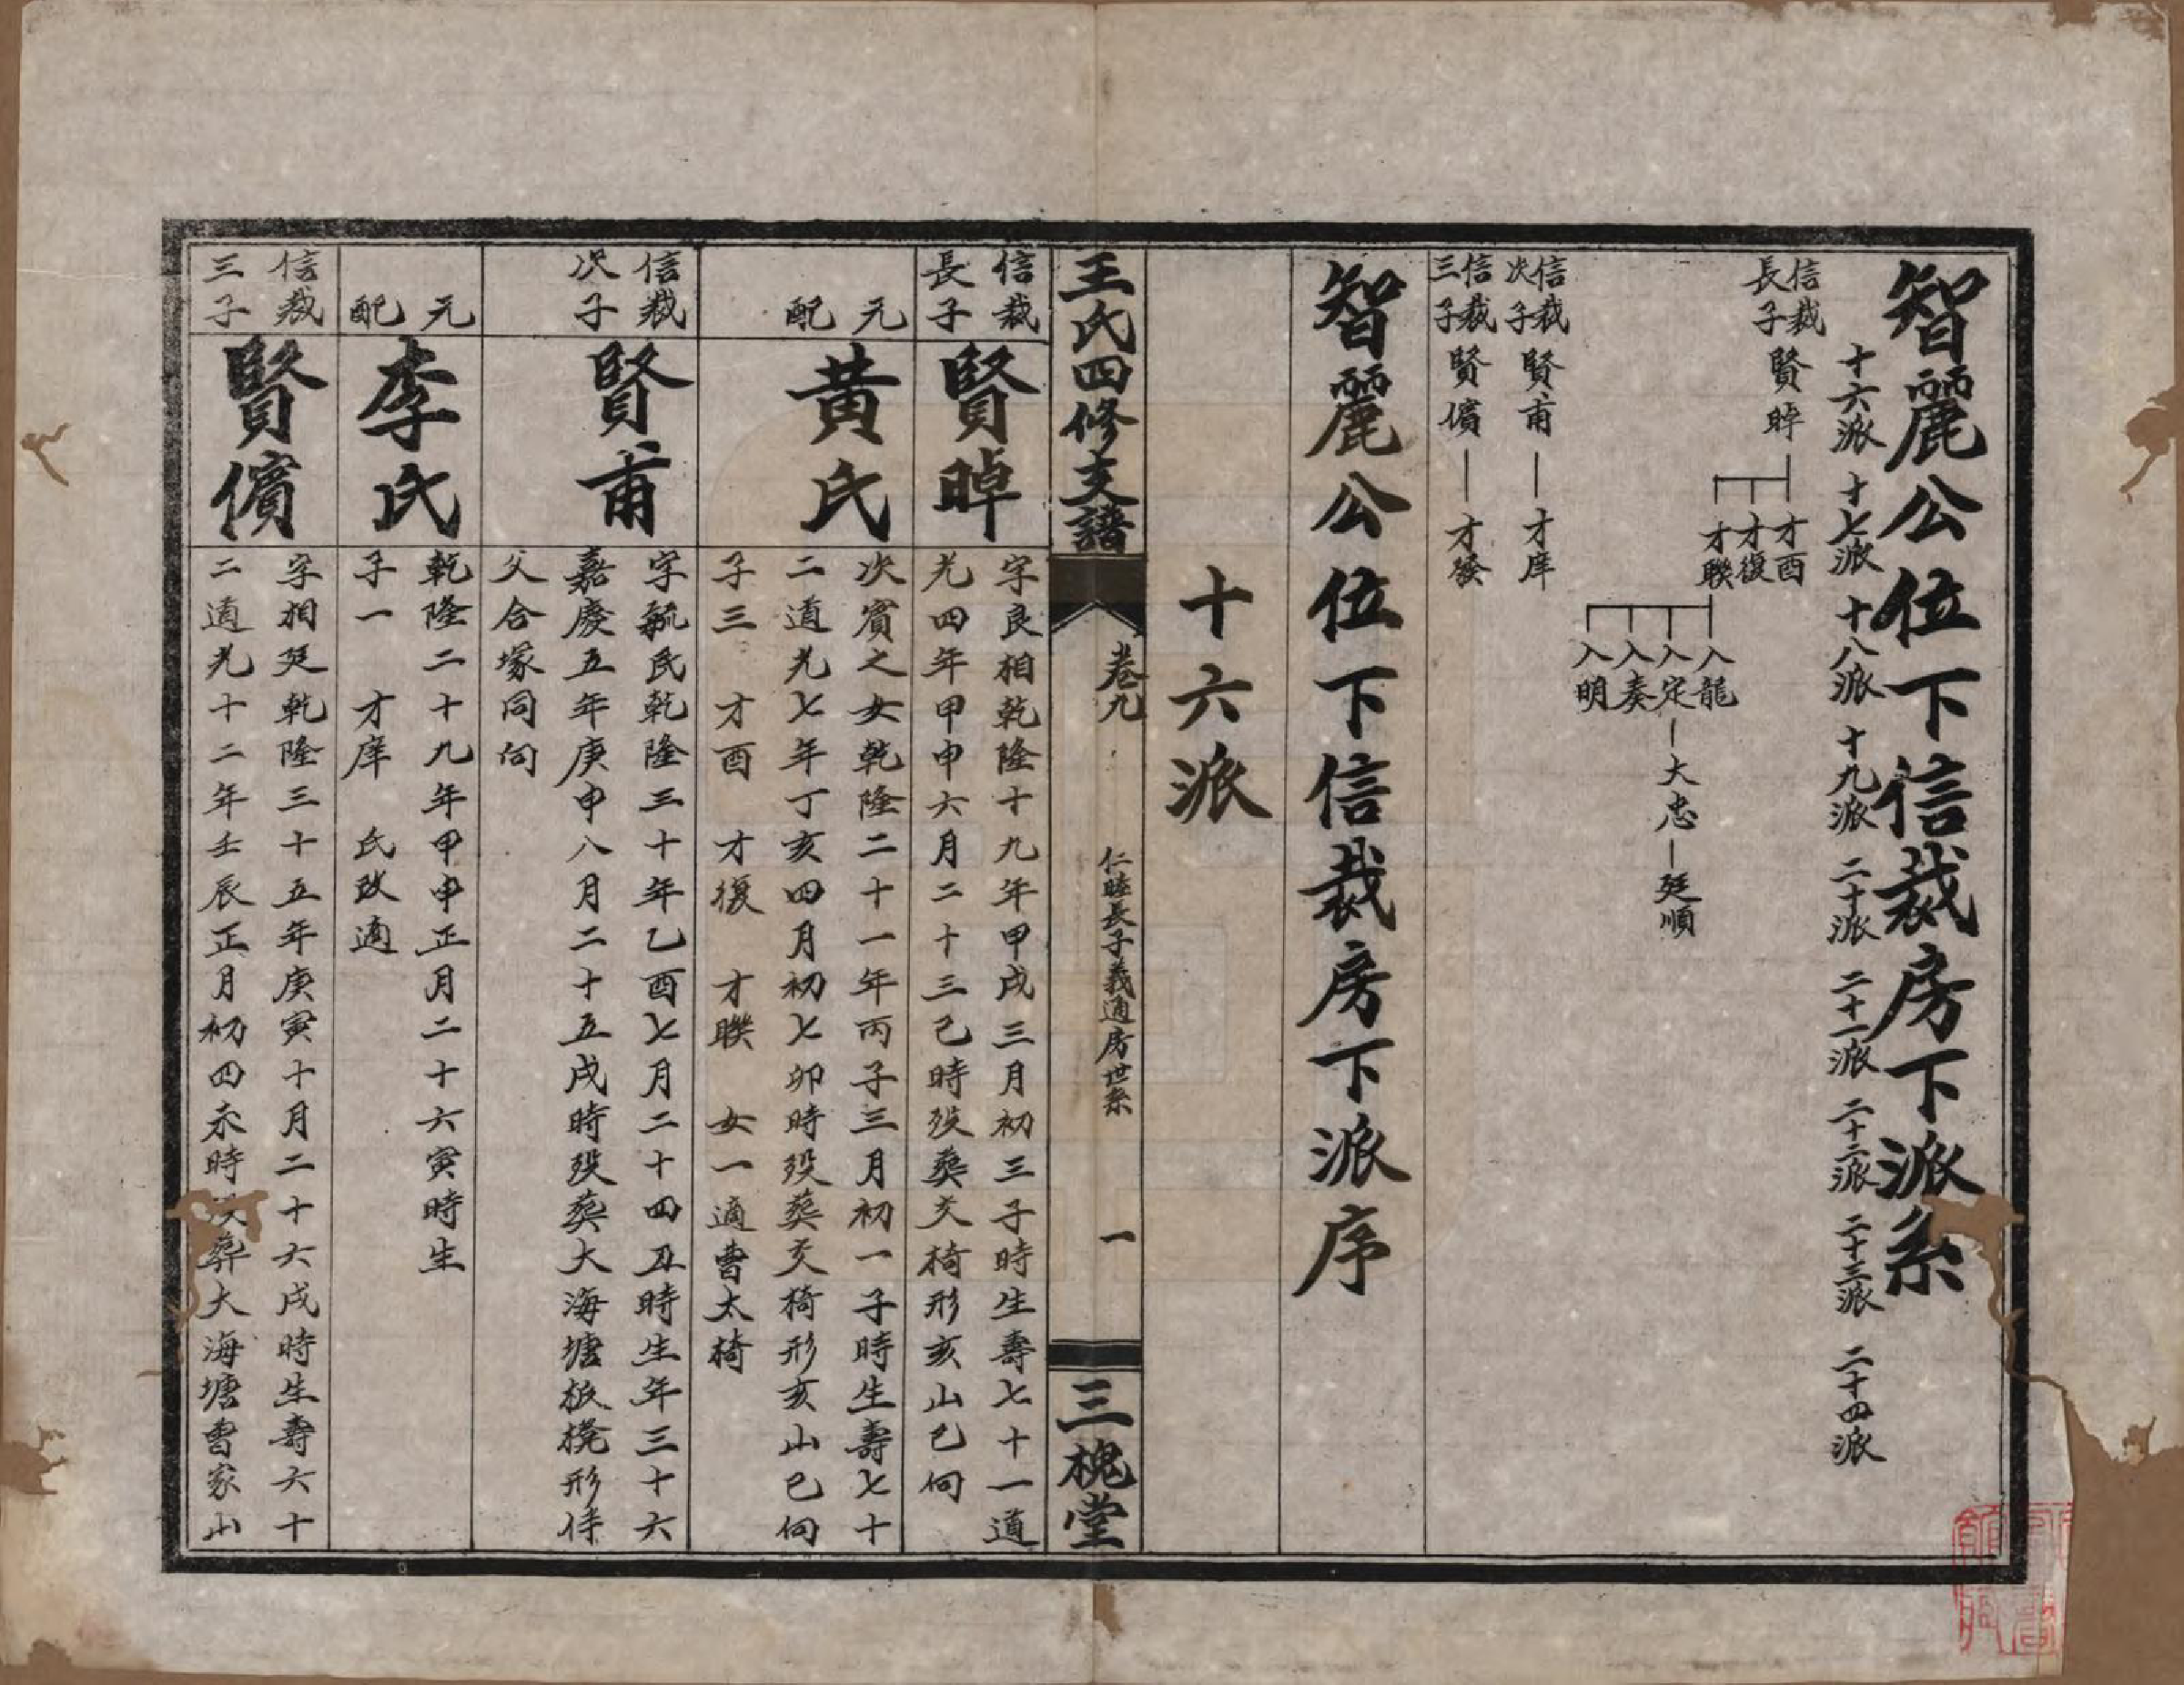 智麗公位下信裁房下派系
十六派 十七派 十八派 十九派 二十派 二十一派 二十二派 二十三派 二十四派
信裁長子 賢晫 才酉 才復 才聯
入龍 入定 入奏 入明
大忠 廷順
信裁次子 賢甫 才庠
信裁三子 賢儐 才發
智麗公位下信裁房下派序
十六派
王氏四修支譜
卷九
仁睦長子義通房世系
一
三槐堂
信裁
長子
賢晫
字良相乾隆十九年甲戌三月初三子時生壽七十一道
光四年甲申六月二十三己時歿葬交椅形亥山巳向
元
配
黃氏
次賓之女乾隆二十一年丙子三月初一子時生壽七十
二道光七年丁亥四月初七卯時歿葬交椅形亥山巳向
子三 才酉 才復 才聯 女一適曹太椅
信裁
次子
賢甫
字毓民乾隆三十年乙酉七月二十四丑時生年三十六
嘉慶五年庚申八月二十五戌時歿葬大海塘板櫈形侍
父合塚同向
元
配
李氏
乾隆二十九年甲申正月二十六寅時生
子一 才庠 氏改適
信裁
三子
賢儐
字相廷乾隆三十五年庚寅十月二十六戌時生壽六十
二道光十二年壬辰正月初四未時歿葬大海塘曹家山